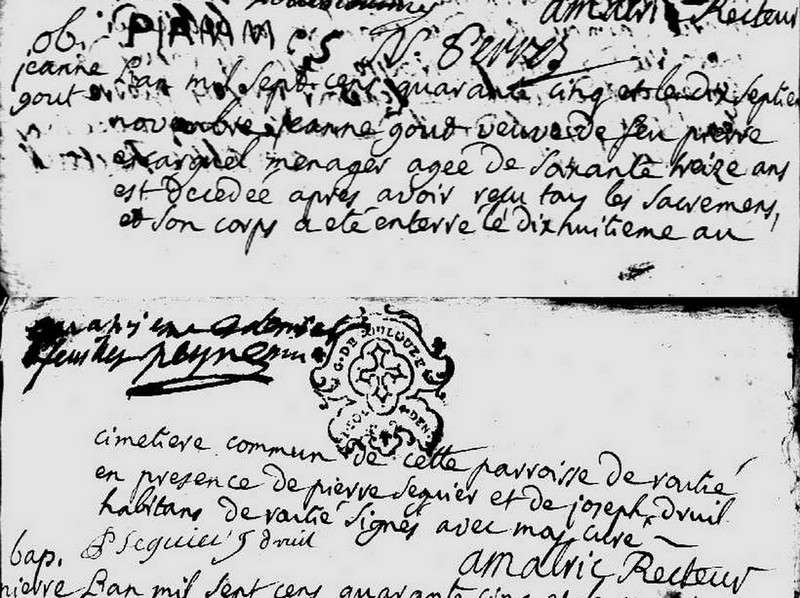 amalric Recteur
ob.
jeanne
gout
Lan mil sept cens quarante cinq et le dix septie
novembre jeanne gout veuve de feu pierre
escarguel menager agee de soixante treize ans
est decedée apres avoir resu tous les sacremens,
et son corps a eté enterré le dixhuitieme au
G. DE TOULOUZE
cimetiere commun de cette parroisse de roulié
en presence de pierre seguier et de joseph druil
habitans de roulié signés avec moy curé
P seguier J druil
amalric Recteur
bap.
pierre Lan mil sept cens quarante cinq et